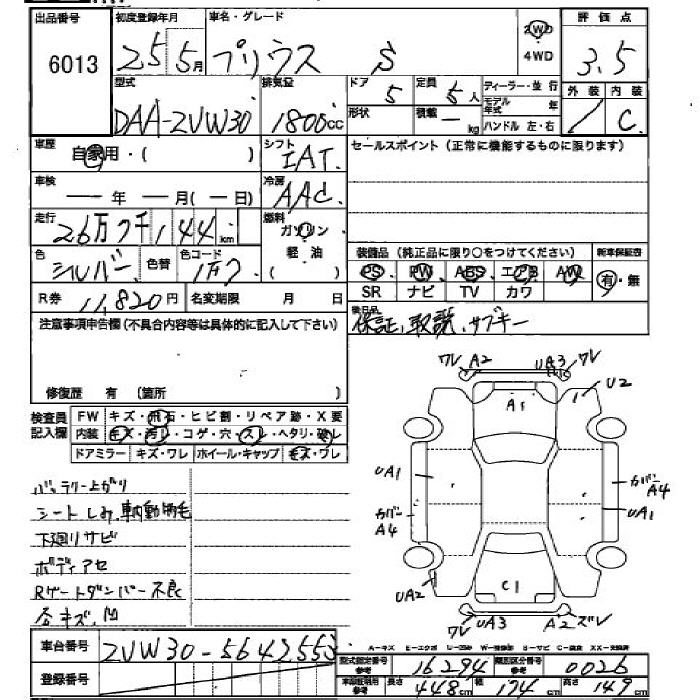 出品番号 初度登録年月 車名・グレード 評価点
6013 25 5月 プリウス S 2WD ・ 4WD 3.5
型式 排気量 ドア 定員 ディーラー・並行 外装 内装
DAA-ZVW30 1800cc 5 5人 モデル年式 年 C
形状 積載 ー kg ハンドル 左・右
車歴 自家用・( ) シフト IAT セールスポイント(正常に機能するものに限ります)
車検 ー年ー月(ー日) 冷房 AAC
走行 26万 千 144 km 燃料 ガソリン
色 シルバー 色替 色コード 1F7 軽油 ( )
装備品(純正品に限り○をつけてください) 新車保証書
PS PW ABS エアB AW 有・無
SR ナビ TV カワ
R券 11,820円 名変期限 月 日
後日品 保証、取説、サブキー
注意事項申告欄(不具合内容等は具体的に記入して下さい)
修復歴 有 (箇所 )
検査員記入欄 FW キズ・飛石・ヒビ割・リペア跡・X要
内装 キズ・汚れ・コゲ・穴・スレ・ヘタリ・破レ
ドアミラー キズ・ワレ ホイール・キャップ キズ・ワレ
ワレ A2 UA3 ワレ
A1 U2
UA1 カバー A4
カバー A4 UA1
C1
UA2
ワレ UA3 A2 ズレ
バッテリー上がり
シートしみ、車内動物毛
下廻りサビ
ボディアセ
Rゲートダンパー不良
各キズ、凹
A-キズ E-エクボ U-凹み W-補修跡 B-サビ C-腐食 XX-交換済
車台番号 ZVW30-5642553
型式指定番号 参考 16294 類別区分番号 参考 0026
登録番号
車庫証明用 参考 長さ 448cm 幅 174cm 高さ 149cm